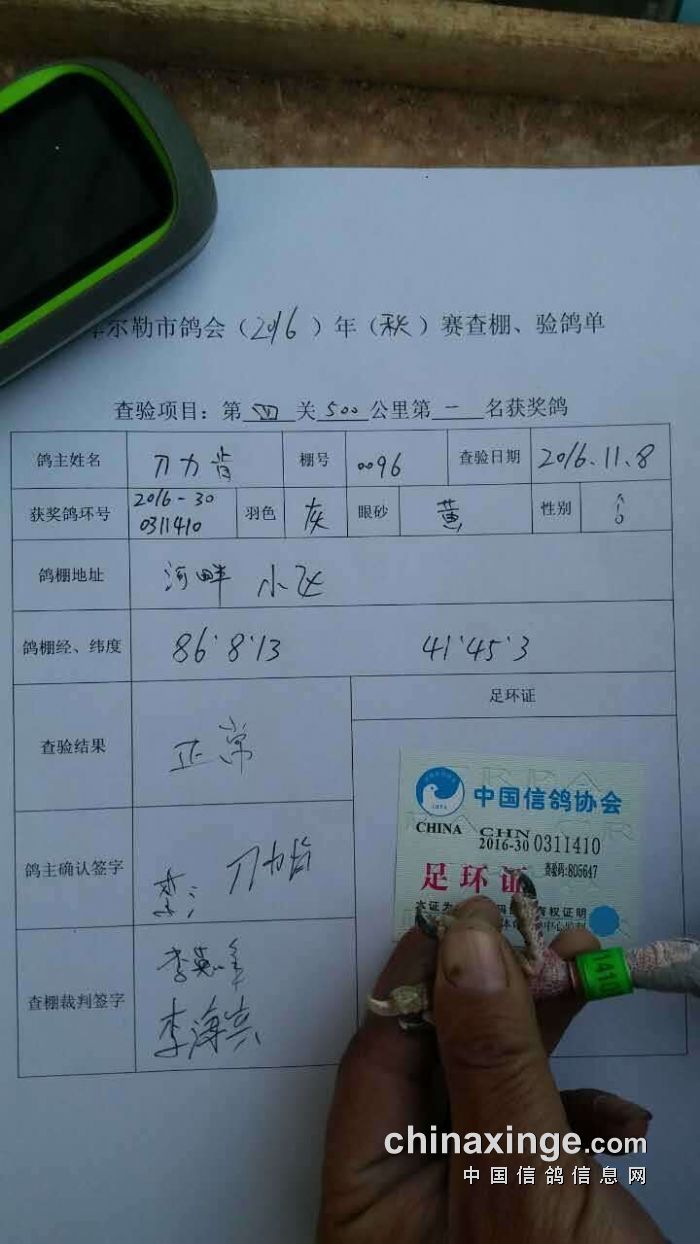 尔勒市鸽会（2016）年（秋）赛查棚、验鸽单
查验项目：第 四 关 500 公里第 一 名获奖鸽
鸽主姓名 刀力肯 棚号 0096 查验日期 2016.11.8
获奖鸽环号 2016-30 0311410 羽色 灰 眼砂 黄 性别
鸽棚地址 河畔 小飞
鸽棚经、纬度 86°8'13 41'45'3
查验结果 正常
足环证
鸽主确认签字 刀力肯
查棚裁判签字 李
李海
中国信鸽协会
CHINA CHN
2016-30 0311410
查验码:805647
足环证
本证为 有权证明
1410
chinaxinge.com
中国信鸽信息网